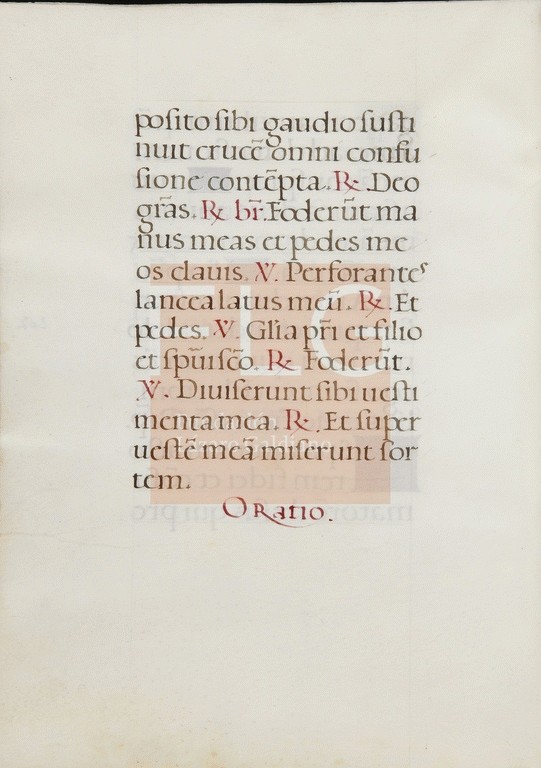 posito sibi gaudio susti
nuit crucē omni confu
sione contēpta. ℟. Deo
gr̄as. ℟ br̄. Foderūt ma
nus meas et pedes me
os clauis. ℣. Perforantes
lancea latus meū. ℟. Et
pedes. ℣. Gl̄ia pr̄i et filio
et sp̄ui sc̄o. ℟. Foderūt.
℣. Diuiserunt sibi uesti
menta mea. ℟. Et super
uestē meā miserunt sor
tem.
Oratio.
FLG